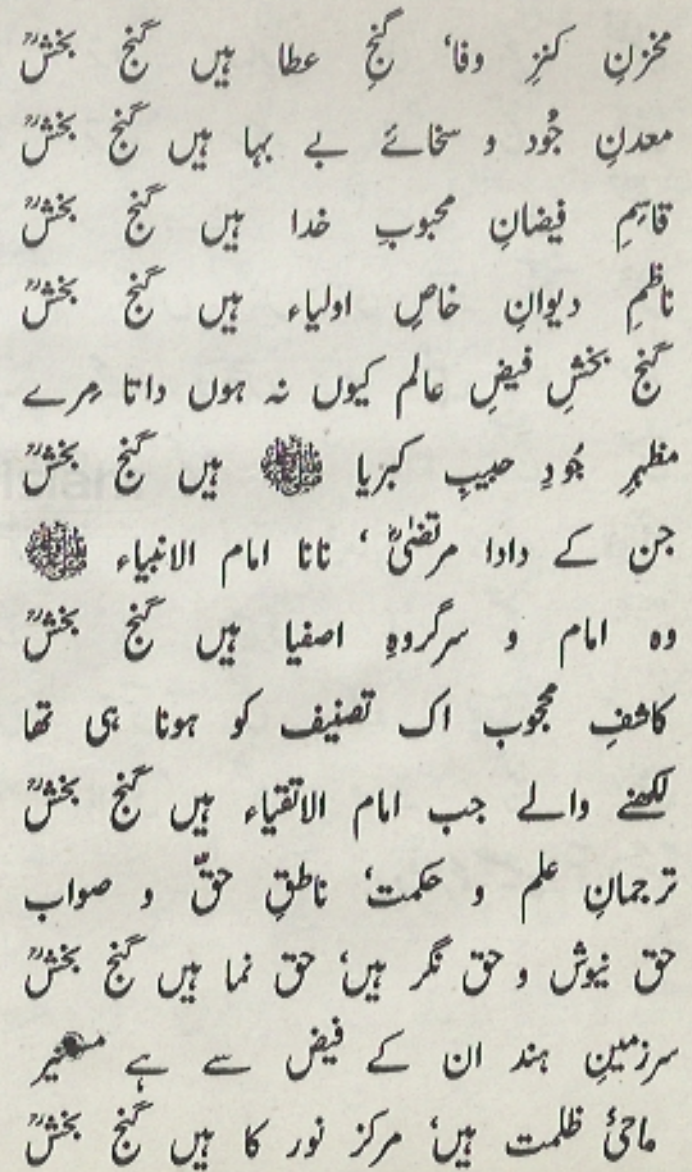 مخزنِ کنزِ وفا، گنجِ عطا ہیں گنج بخشؒ
معدنِ جُود و سخائے بے بہا ہیں گنج بخشؒ
قاسمِ فیضانِ محبوبِ خدا ہیں گنج بخشؒ
ناظمِ دیوانِ خاصِ اولیاء ہیں گنج بخشؒ
گنج بخشِ فیضِ عالم کیوں نہ ہوں داتا مِرے
مظہرِ جُودِ حبیبِ کبریا ﷺ ہیں گنج بخشؒ
جن کے دادا مرتضیٰؓ ، نانا امام الانبیاء ﷺ
وہ امام و سرگروہِ اصفیا ہیں گنج بخشؒ
کاشفِ محجوب اک تصنیف کو ہونا ہی تھا
لکھنے والے جب امام الاتقیاء ہیں گنج بخشؒ
ترجمانِ علم و حکمت، ناطقِ حقّ و صواب
حق نیوش و حق نگر ہیں، حق نما ہیں گنج بخشؒ
سرزمینِ ہند ان کے فیض سے ہے
ماحیٔ ظلمت ہیں، مرکز نور کا ہیں گنج بخشؒ